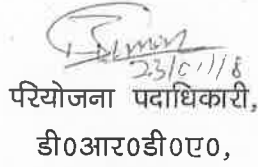 23/01/18
परियोजना पदाधिकारी,
डी०आर०डी०ए०,